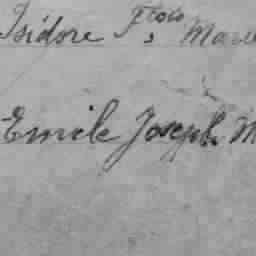 Isidore Flois, Marie
Emile Joseph M